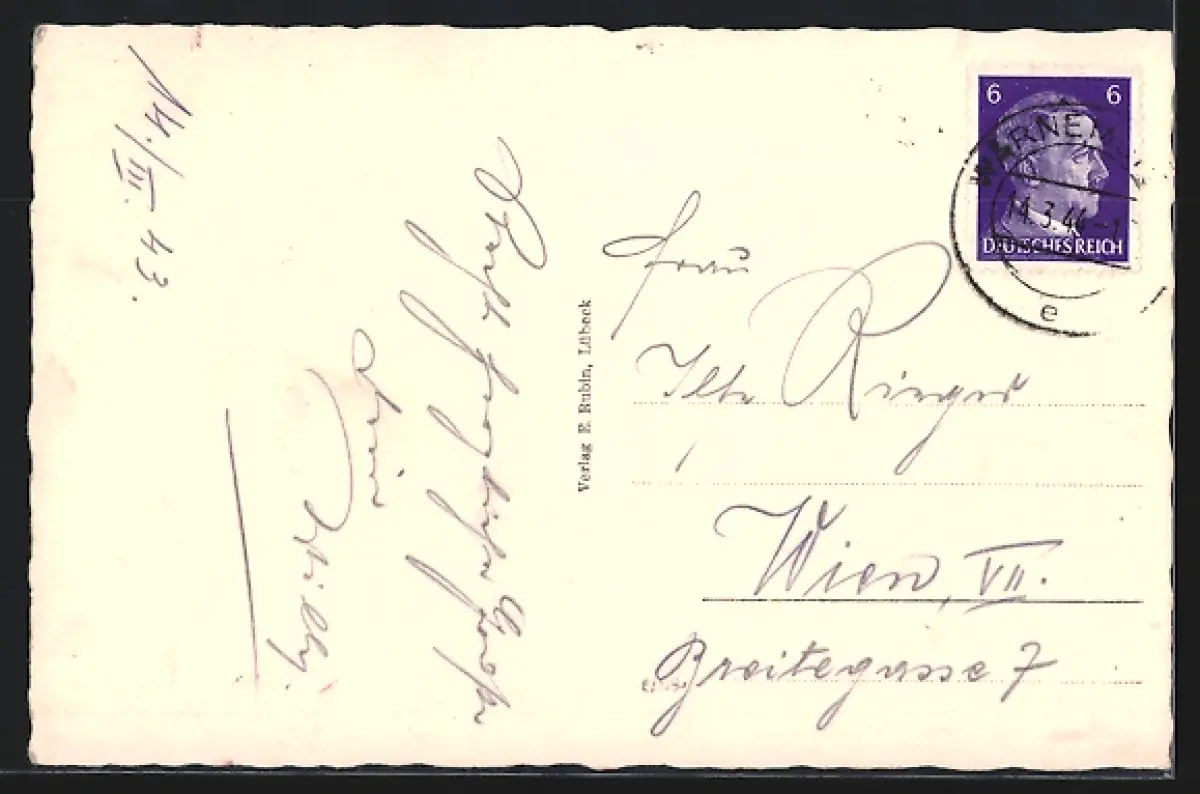 14./III. 43.
Recht herzliche Grüße
Dein
Willy
Verlag E. Rubin, Lübeck
6 6
DEUTSCHES REICH
14.3.44
e
Frau
Ilse Rieger
Wien, VII.
Breitegasse 7